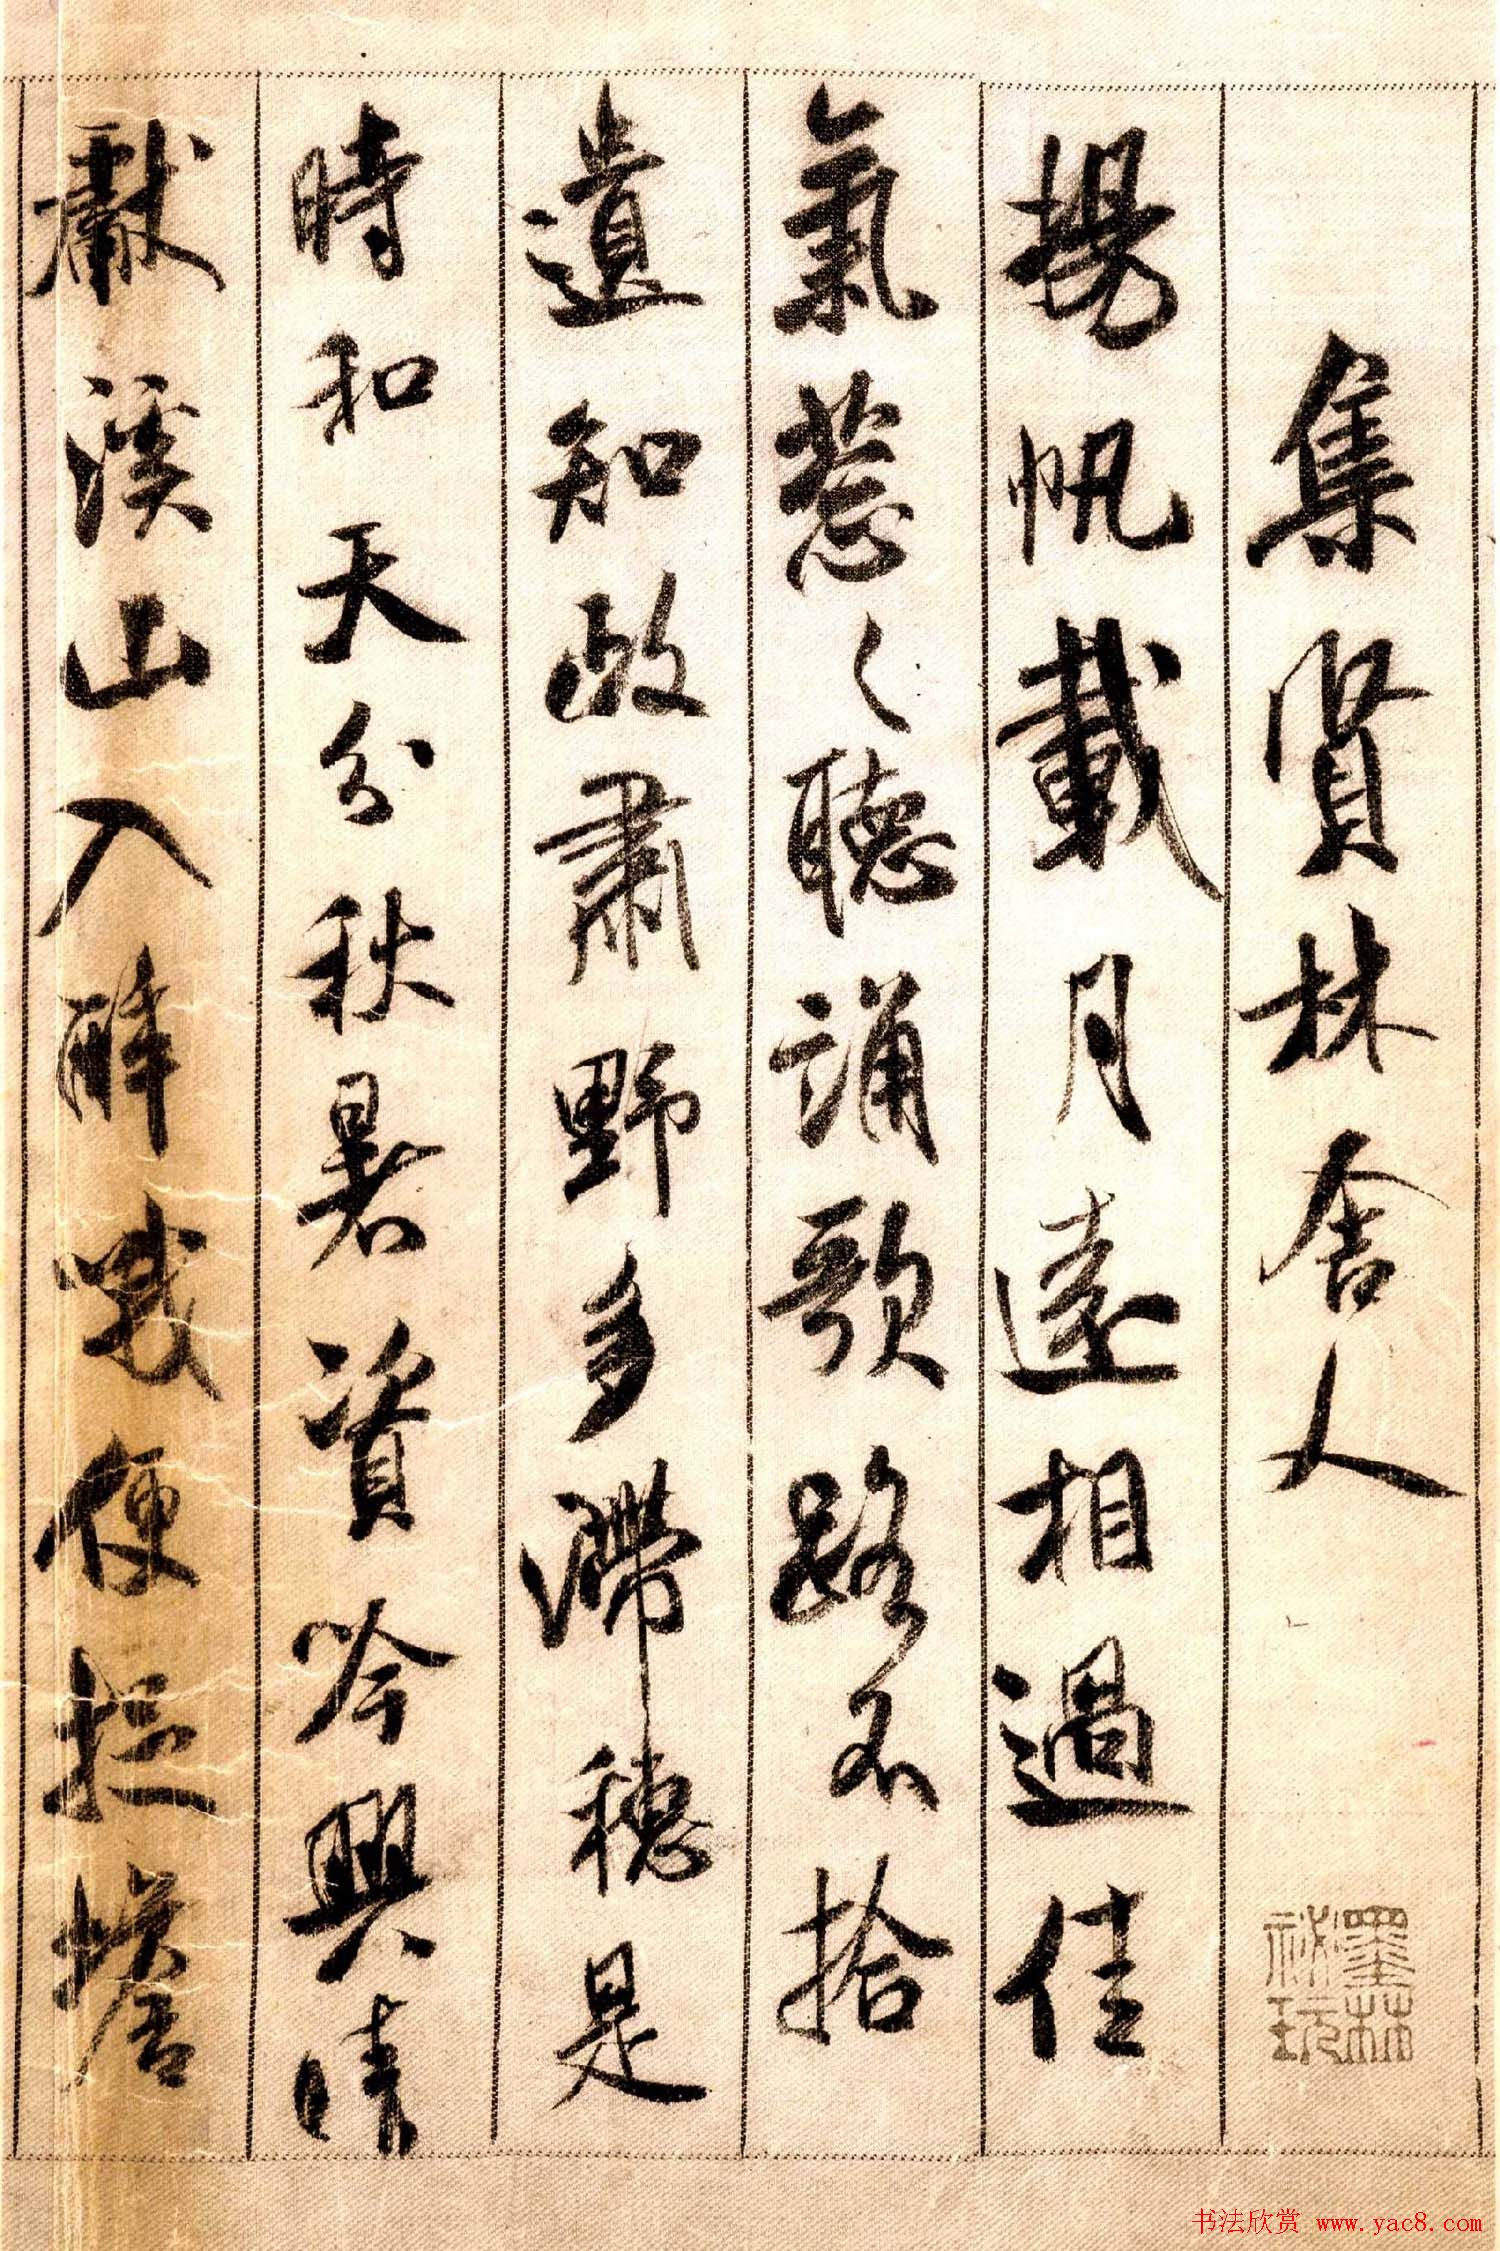 集賢林舍人
揚帆載月遠相過佳
氣葱々聽誦歌路不拾
遺知政肅野多滯穗是
時和天分秋暑資吟興晴
獻溪山入醉哦便捉蟾
墨林
祕玩
书法欣赏 www.yac8.com